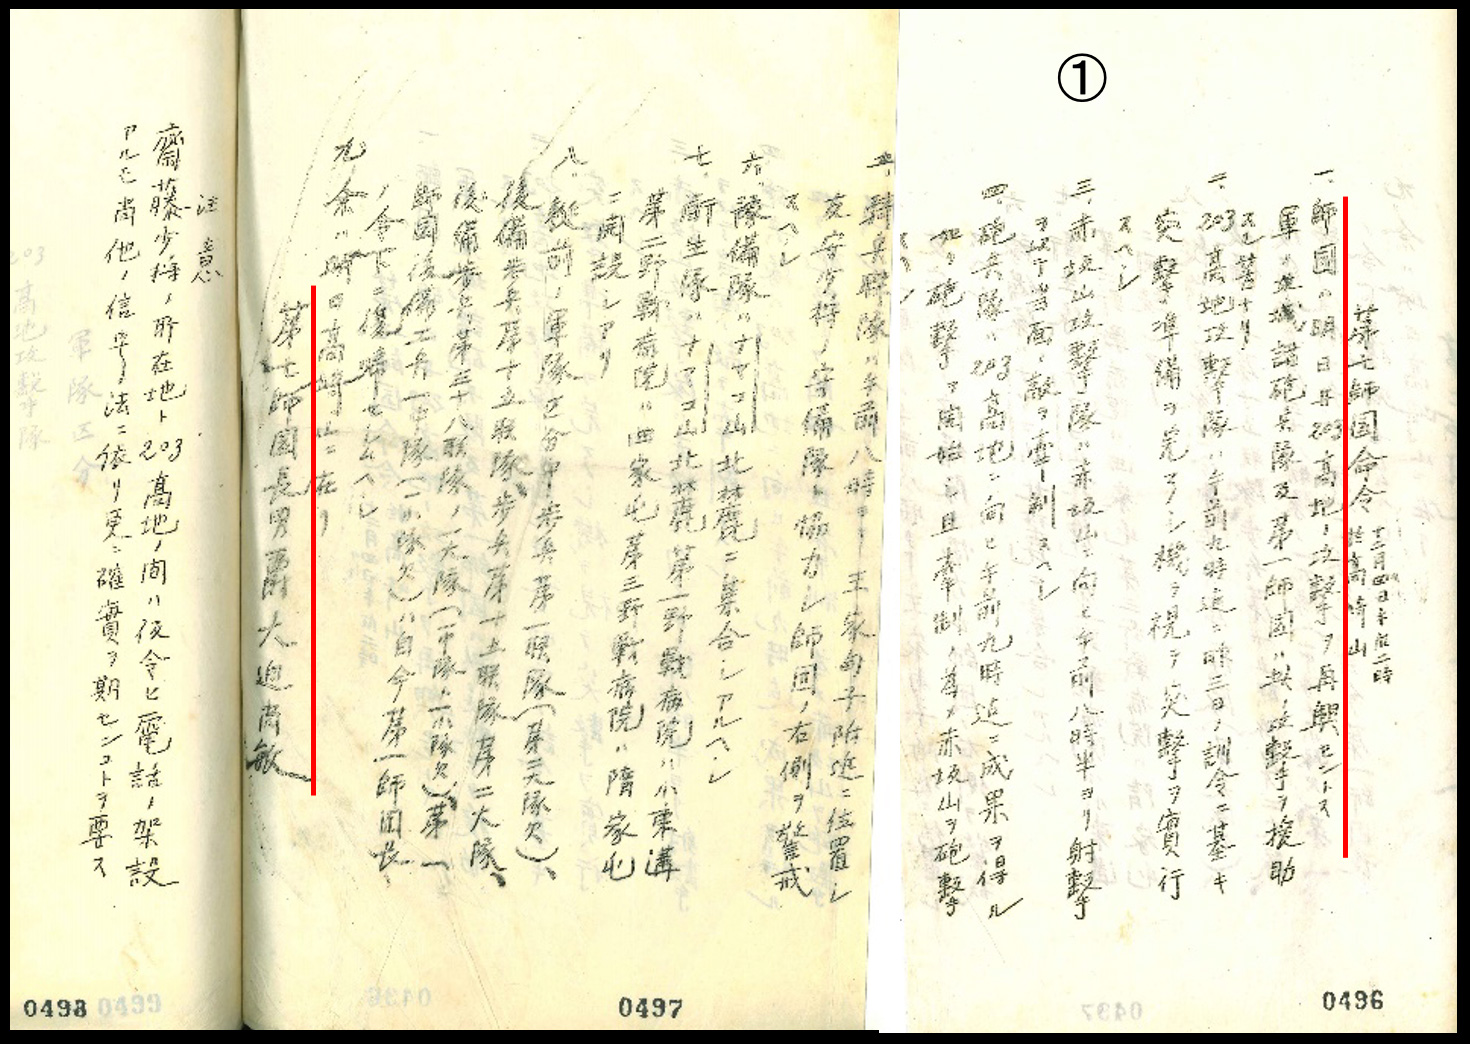 ①
第七師団命令 十二月四日午后二時 於高崎山
一、師團ハ明日再203高地ノ攻撃ヲ再興セントス
軍ノ重砲諸砲兵隊及第一師團ハ共ニ攻撃ヲ援助
スル筈ナリ
二、203高地攻撃隊ハ午前九時迠ニ昨三日ノ訓令ニ基キ
突撃ノ準備ヲ完フシ機ヲ視テ突撃ヲ實行
スヘシ
三、赤坂山攻撃隊ハ赤坂山ニ向ヒ午前八時半ヨリ射撃
ヲ以テ当面ノ敵ヲ牽制スヘシ
四、砲兵隊ハ203高地ニ向ヒ午前九時迠ニ成果ヲ得ル
如ク砲撃ヲ開始シ且牽制ノ為メ赤坂山ヲ砲撃
五、騎兵聯隊ハ午前八時ヨリ王家甸子附近ニ位置シ
友安少将ノ守備隊ト協力シ師団ノ右側ヲ警戒
スヘシ
六、豫備隊ハナマコ山北麓ニ集合シアルヘシ
七、衛生隊ハナマコ山北麓第一野戰病院ハ小東溝
第二野戰病院ハ曲家屯第三野戰病院ハ隋家屯
ニ開設シアリ
八、従前ノ軍隊区分中歩兵第一联隊(第二大隊欠)、
後備歩兵第十五联隊、歩兵第十五联隊第二大隊、
後備歩兵第三十八联隊ノ一大隊(一中隊ト一小隊欠)、第一
師團後備工兵一中隊(一小隊欠)ハ自今第一師団長
ノ令下ニ復帰セシムヘシ
九、余ハ明日高崎山ニ在リ
第七師團長男爵大迫尚敏
注意
齋藤少将ノ所在地ト203高地ノ間ハ仮令ヒ電話ノ架設
アルモ尚他ノ信号ノ法ニ依リ更ニ確實ヲ期センコトヲ要ス
0496
0497
0498